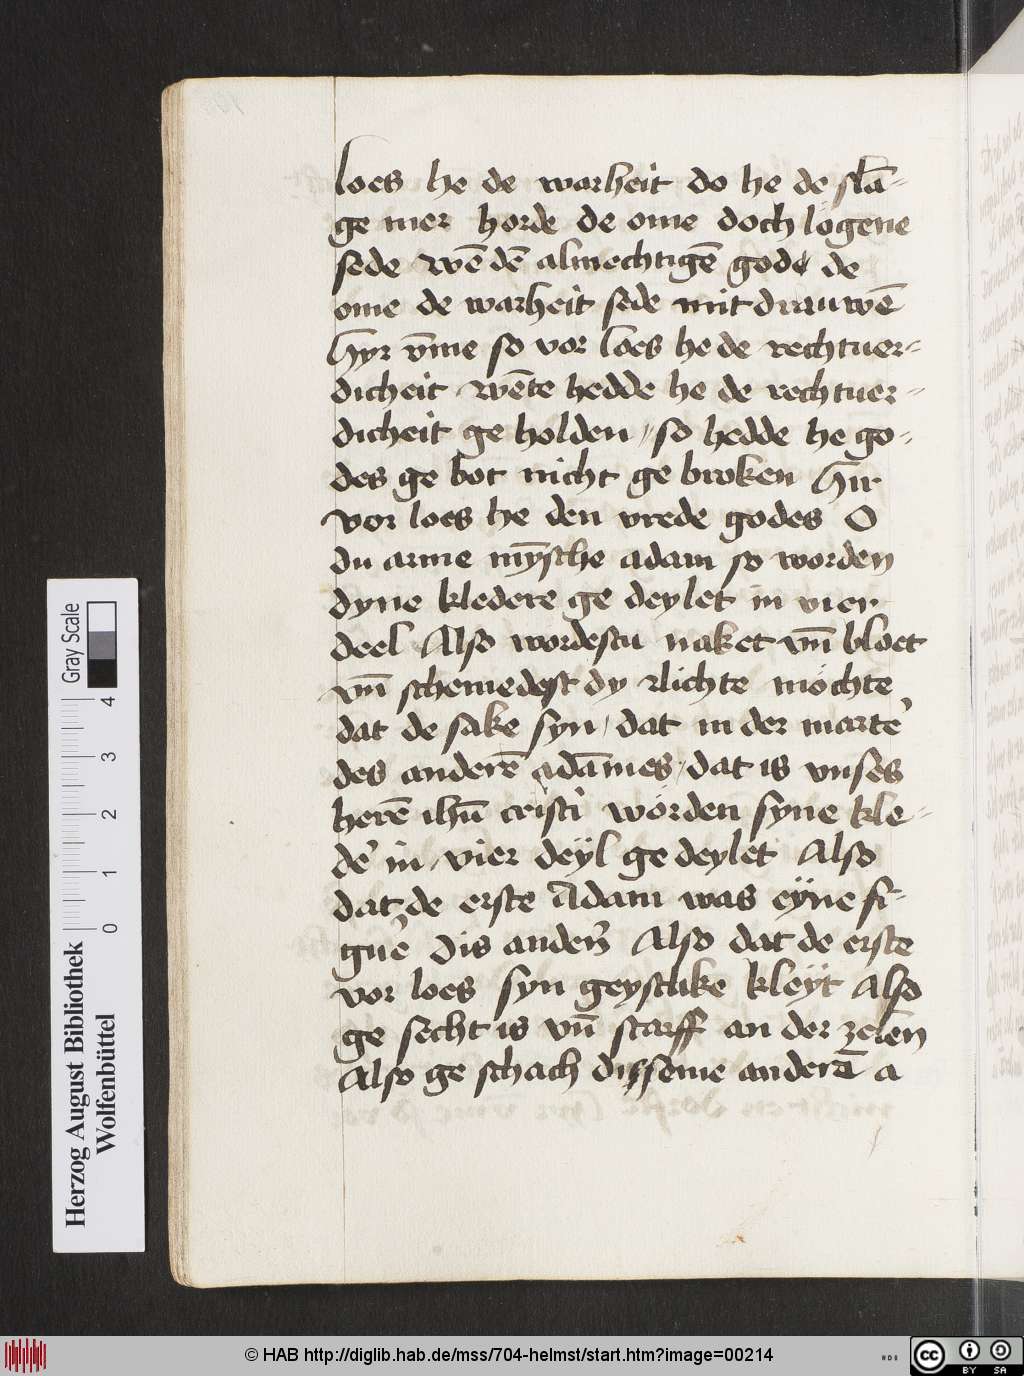 loes he de warheit do he de slā-
ge mer horde de ome doch logene
sede wē dē almechtigē gode de
ome de warheit sede mit drauwē
Hyr v̄me so vor loes he de rechtuer-
dicheit wēte hedde he de rechtuer-
dicheit ge holden, so hedde he go-
des ge bot nicht ge broken Hir
vor loes he den vrede godes O
du arme mȳsche adam so worden
dyne kledere ge deylet in vier
deel Also wordestu naket vn̄ bloet
vn̄ schemedest dy
dat de sake syn, dat in der marte᾽
des anderē adāmes, dat is vnses
herē ihū cristi worden syne kle-
de᾽ in vier deyl ge deylet Also
dat de erste Adam was eyne fi-
gue᾽ dis anden̄ Also dat de erste
vor loes syn geystlike kleyt Also
ge secht is vn̄ starff an der zelen
Also ge schach dusseme anderē a
Herzog August Bibliothek
Wolfenbüttel
Gray Scale
0 1 2 3 4
© HAB http://diglib.hab.de/mss/704-helmst/start.htm?image=00214
cc BY SA